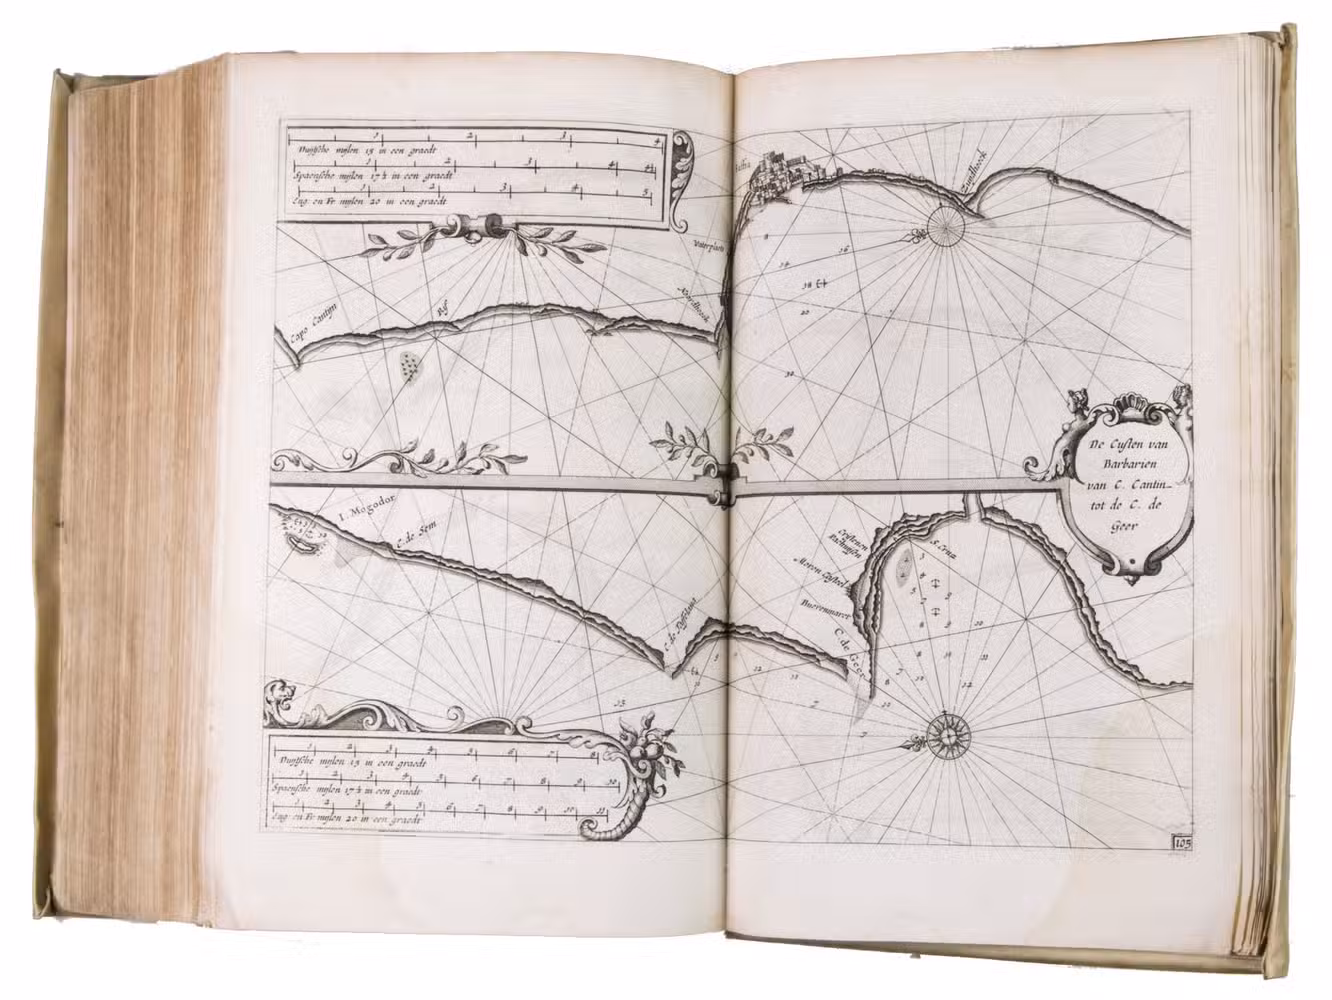 1 2 3 4
Duytsche mylen 15 in een graedt
1 2 3 4 4½
Spaensche mylen 17½ in een graedt
1 2 3 4 5
Eng en Fr mylen 20 in een graedt
Capo Cantijn
Rif
Noordhoeck
Waterplaets
Saffia
Zuydhoeck
8
14
16
18
20
30
De Custen van
Barbarien
van C. Cantin
tot de C. de
Geer
I. Mogodor
C. de Sem
C. de Taffelana
Moron Casteel
C. de Geer
S. Crux
1 2 3 4 5 6 7 8
Duytsche mylen 15 in een graedt
1 2 3 4 5 6 7 8 9 10
Spaensche mylen 17½ in een graedt
1 2 3 4 5 6 7 8 9 10 11
Eng en Fr mylen 20 in een graedt
105